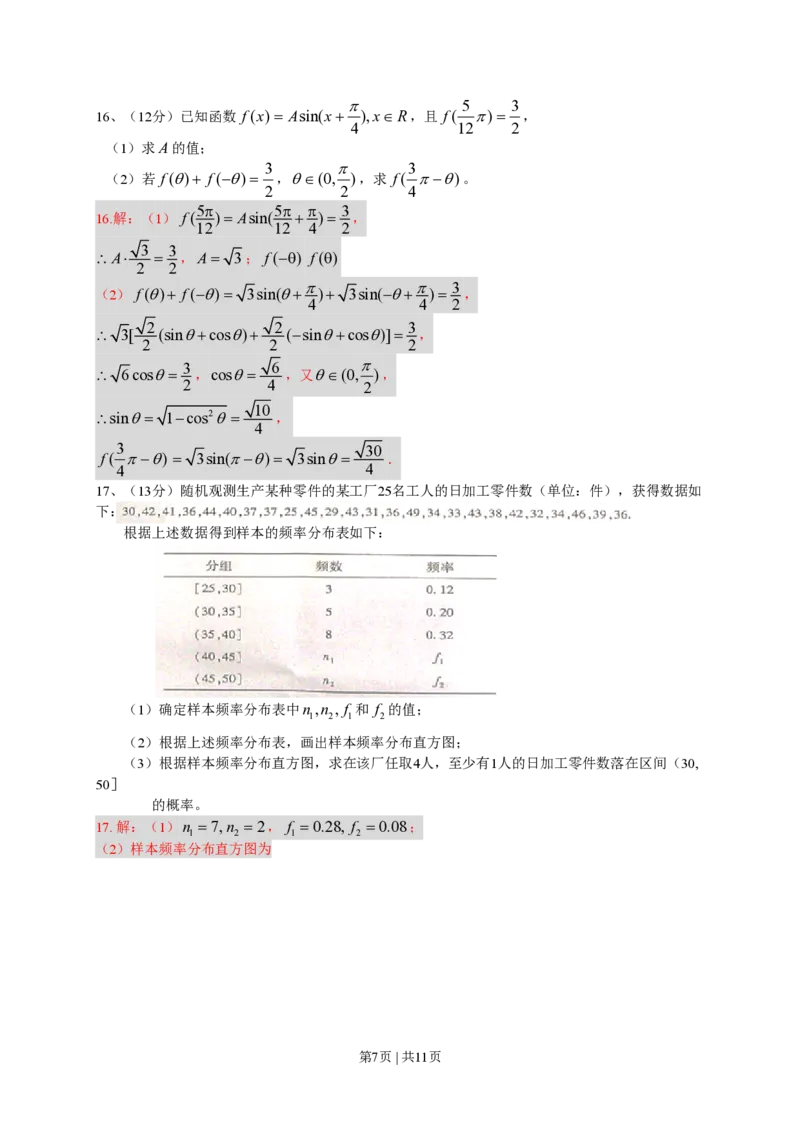 16、（12分）已知函数 f(x) = Asin(x + π/4), x∈R，且 f(5/12 π) = 3/2，
（1）求A的值；
（2）若 f(θ) + f(−θ) = 3/2，θ∈(0, π/2)，求 f(3/4 π−θ)。
16.解：（1） f(5π/12) = Asin(5π/12 + π/4) = 3/2，
∴A· √3/2 = 3/2，A = √3；f(−θ) f(θ)
（2）f(θ) + f(−θ) = √3sin(θ + π/4) + √3sin(−θ + π/4) = 3/2，
∴√3[√2/2(sinθ+cosθ) + √2/2(−sinθ+cosθ)] = 3/2，
∴√6cosθ = 3/2，cosθ = √6/4，又θ∈(0, π/2)，
∴sinθ = √1−cos²θ = √10/4，
f(3/4 π−θ) = √3sin(π−θ) = √3sinθ = √30/4．
17、（13分）随机观测生产某种零件的某工厂25名工人的日加工零件数（单位：件），获得数据如
下：30,42,41,36,44,40,37,37,25,45,29,43,31,36,49,34,33,43,38,42,32,34,46,39,36.
根据上述数据得到样本的频率分布表如下：
分组 频数 频率
[25,30] 3 0.12
(30,35] 5 0.20
(35,40] 8 0.32
(40,45] n₁ f₁
(45,50] n₂ f₂
（1）确定样本频率分布表中n₁,n₂,f₁和f₂的值；
（2）根据上述频率分布表，画出样本频率分布直方图；
（3）根据样本频率分布直方图，求在该厂任取4人，至少有1人的日加工零件数落在区间（30,
50］
的概率。
17. 解：（1）n₁ = 7, n₂ = 2，f₁ = 0.28, f₂ = 0.08；
（2）样本频率分布直方图为
第7页 | 共11页